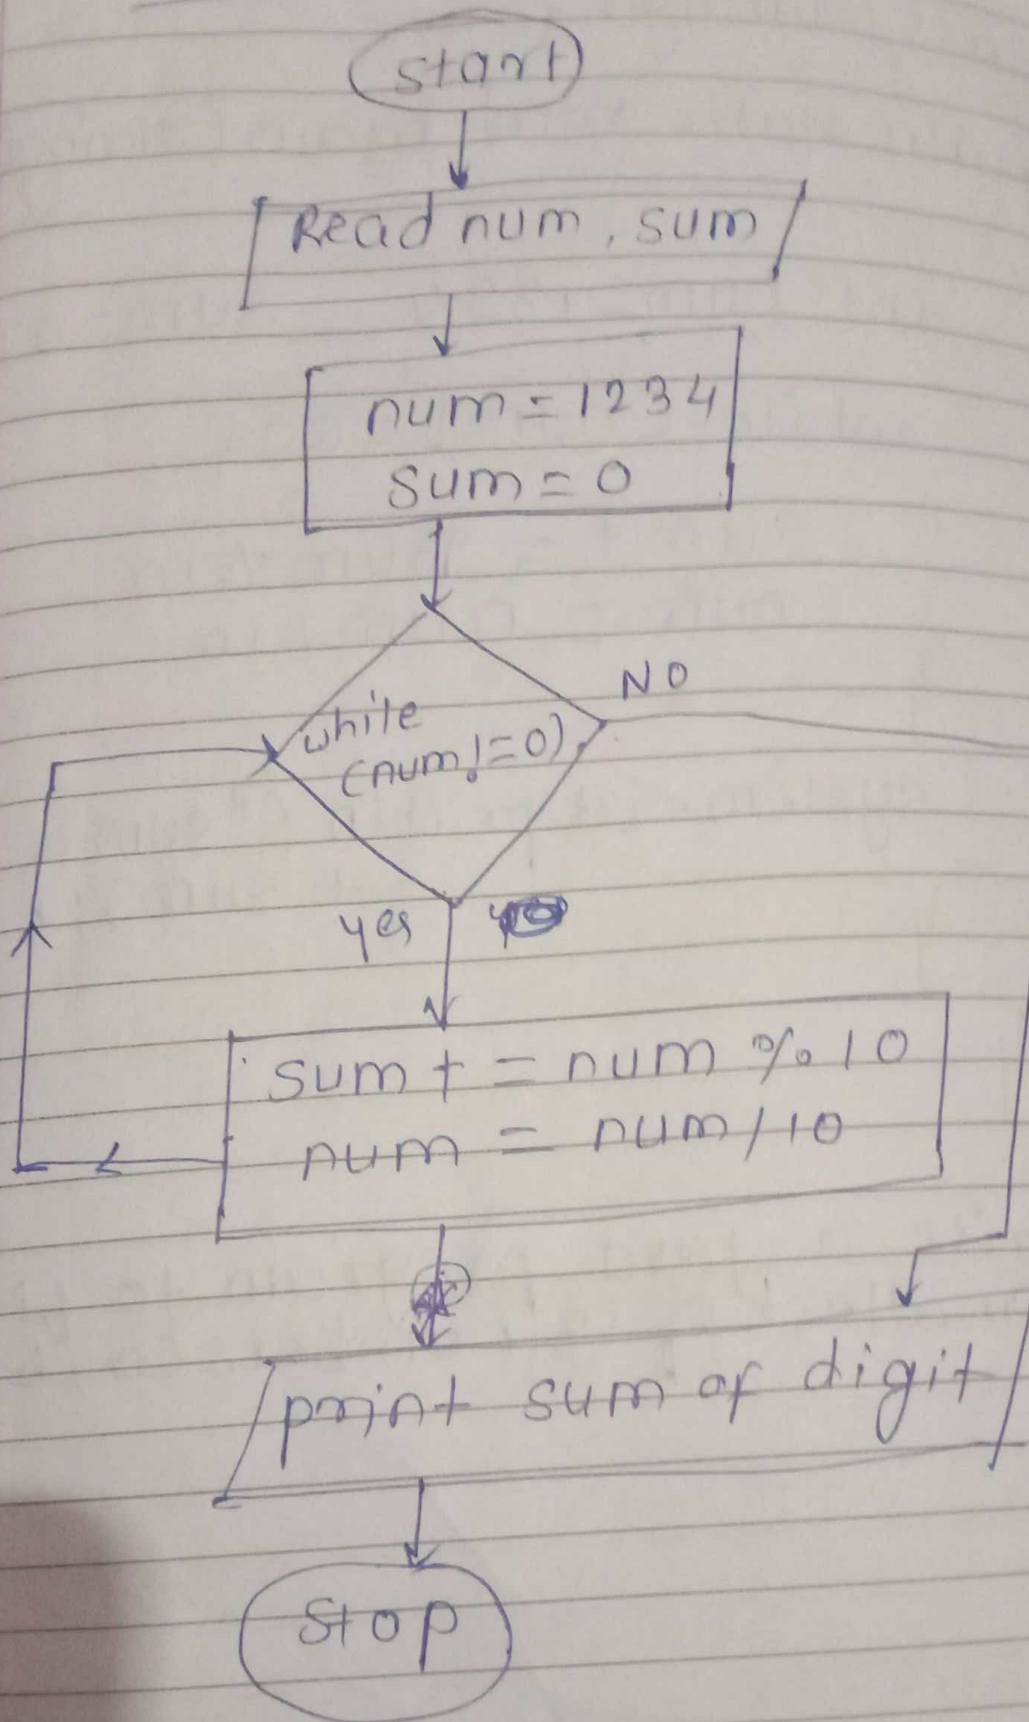 start
Read num, sum
num = 1234
sum = 0
while
(num!=0)
NO
yes
sum + = num % 10
num = num/10
print sum of digit
Stop